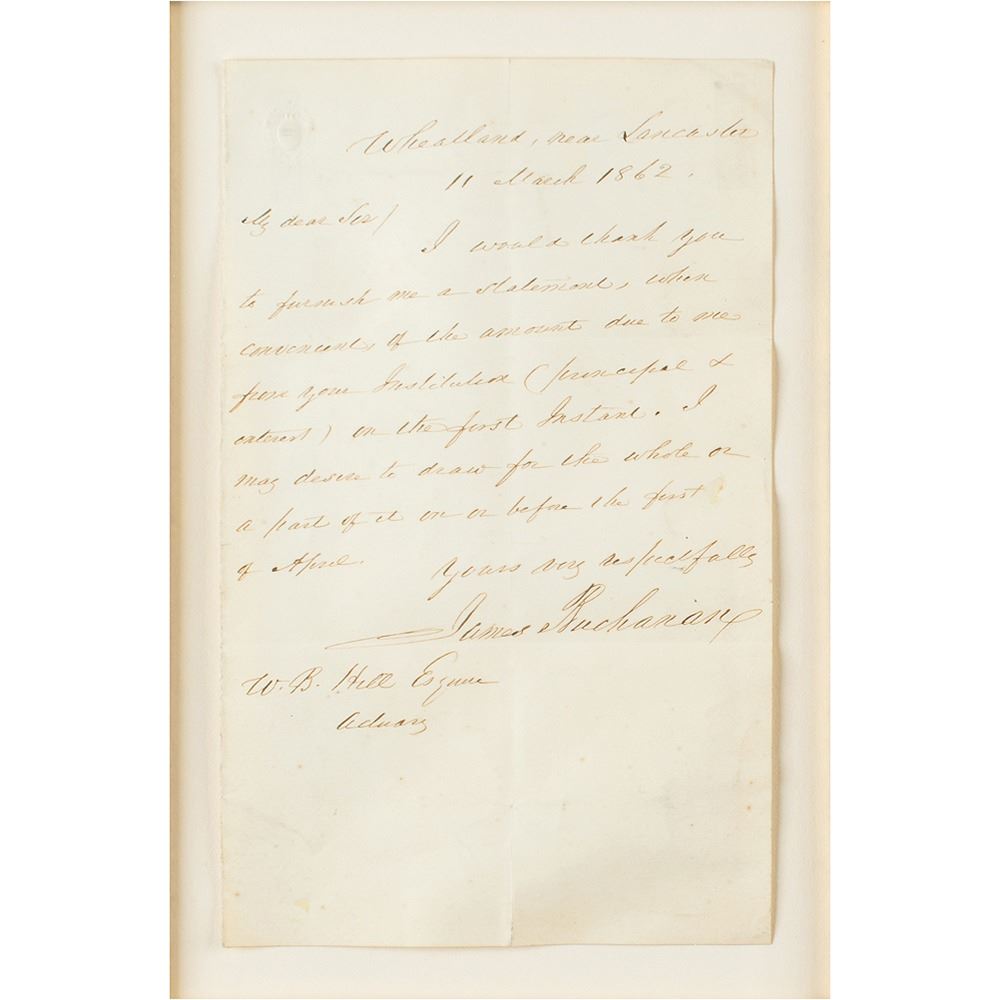 Wheatland, near Lancaster
11 March 1862.
My dear Sir/
I would thank you
to furnish me a statement, when
convenient, of the amount due to me
from your Institution (principal &
interest) on the first Instant. I
may desire to draw for the whole or
a part of it on or before the first
of April.
Yours very respectfully
James Buchanan
W. B. Hill Esquire
Actuary